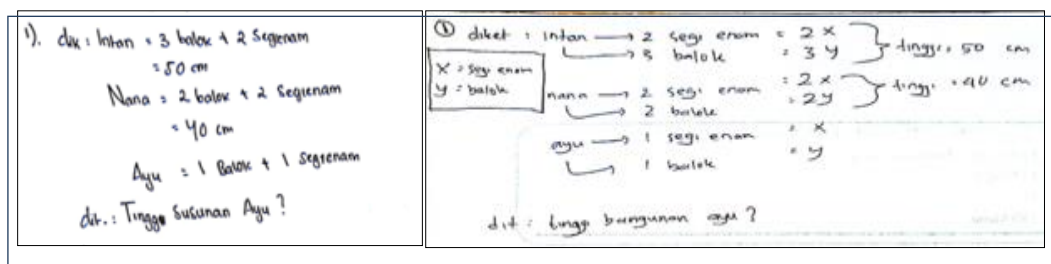 1). dik : Intan = 3 balok + 2 Segienam
= 50 cm
Nana = 2 balok + 2 Segienam
= 40 cm
Ayu = 1 Balok + 1 Segienam
dit. : Tinggi Susunan Ayu ?
① diket : intan → 2 segi enam = 2 x
→ 3 balok = 3 y
tinggi = 50 cm
x = segi enam
y = balok
nana → 2 segi enam = 2 x
→ 2 balok = 2 y
tinggi = 40 cm
ayu → 1 segi enam = x
→ 1 balok = y
dit : tinggi bangunan ayu ?